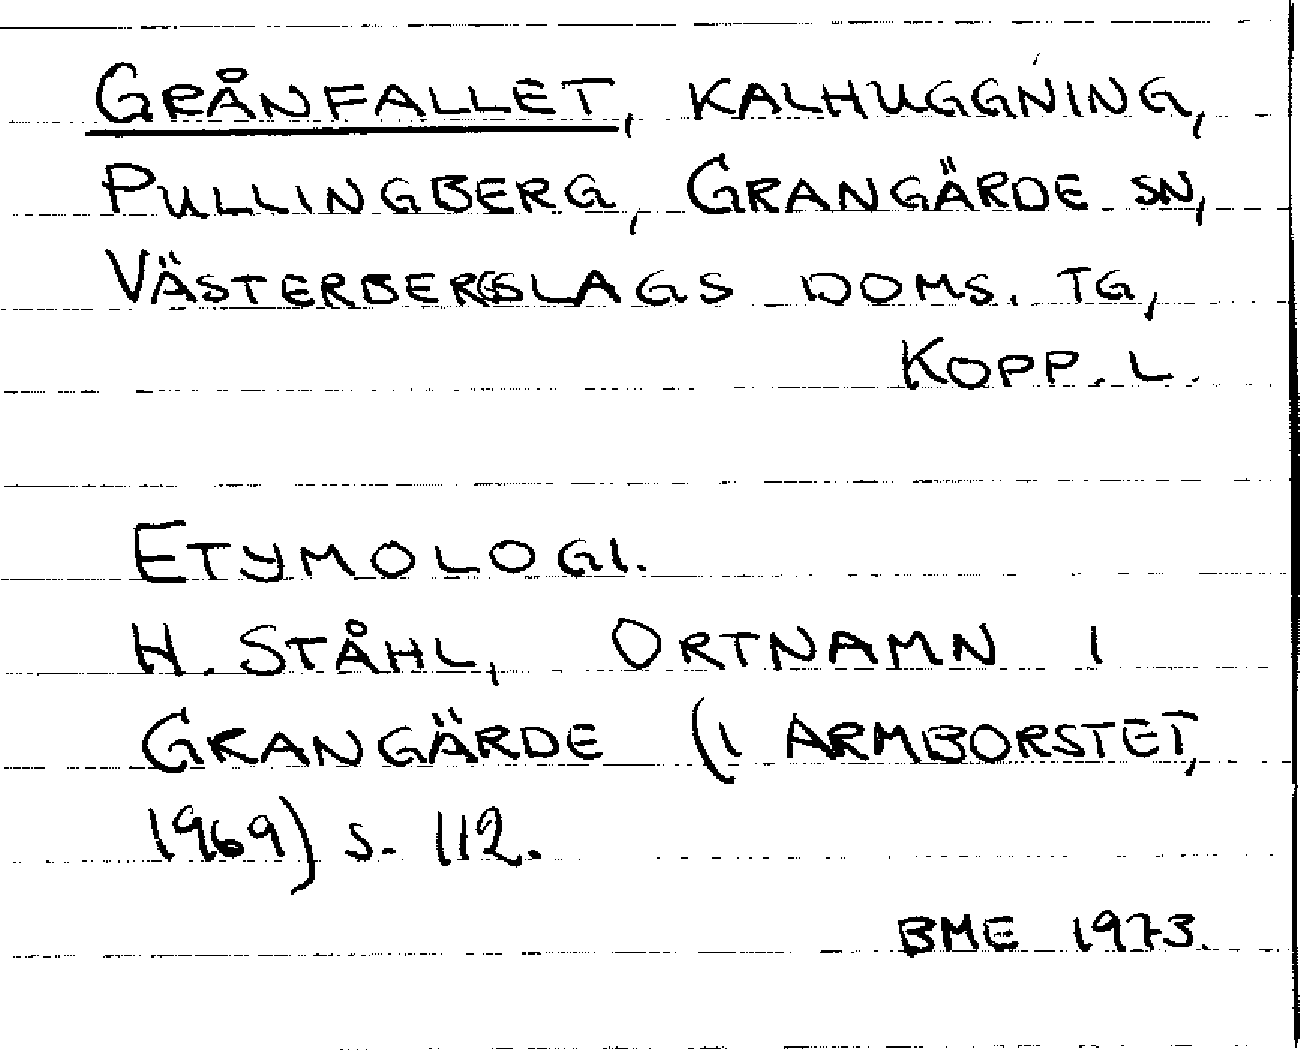 GRÅNFALLET, KALHUGGNING,
PULLINGBERG, GRANGÄRDE SN,
VÄSTERBERGSLAGS DOMS. TG,
KOPP. L.
ETYMOLOGI.
H. STÅHL, ORTNAMN I
GRANGÄRDE (I ARMBORSTET,
1969) S. 112.
BME 1973.